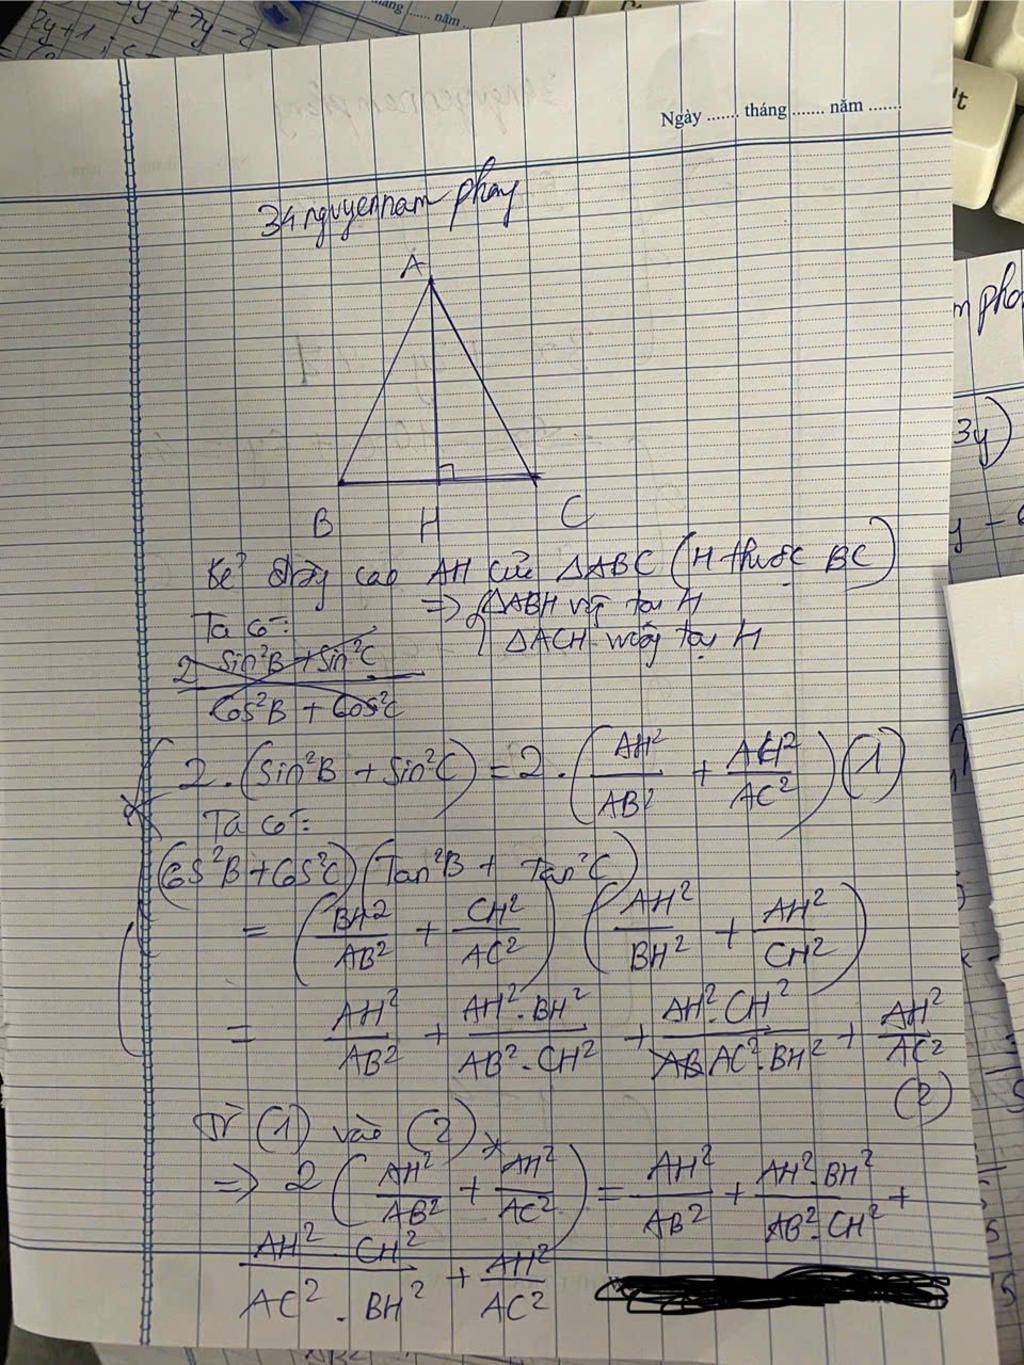 2y+1
+ 7y - 2
tháng ...... năm ...
't
Ngày ...... tháng ...... năm ......
34 nguyennam phong
A
B H C
Kẻ đường cao AH của ΔABC (H thuộc BC)
=> { ΔABH vg tại H
ΔACH vuông tại H
Ta có:
2 Sin²B + Sin²C
Cos²B + Cos²C
2.(Sin²B + Sin²C) = 2.(AH²/AB² + AH²/AC²) (1)
Ta có:
(Cos²B + Cos²C)(Tan²B + Tan²C)
= (BH²/AB² + CH²/AC²) (AH²/BH² + AH²/CH²)
= AH²/AB² + AH².BH²/AB².CH² + AH².CH²/AC².BH² + AH²/AC²
(2)
Từ (1) vào (2)
=> 2 (AH²/AB² + AH²/AC²) = AH²/AB² + AH².BH²/AB².CH² +
AH² . CH²/AC² . BH² + AH²/AC²
m phon
3y)